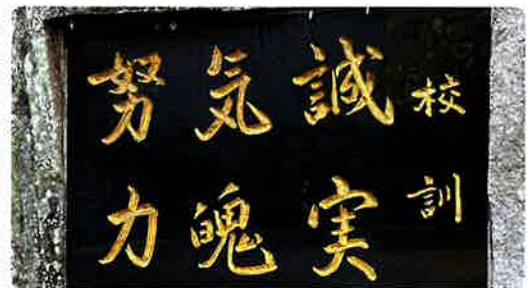 校訓
誠実
気魄
努力